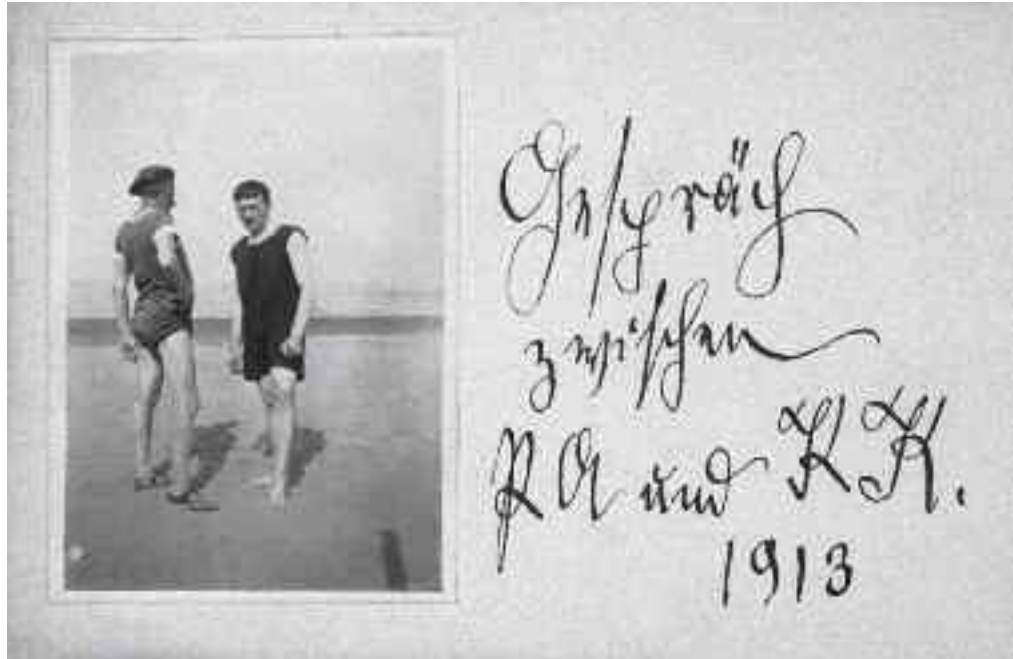 Gespräch
zwischen
PA und KK.
1913